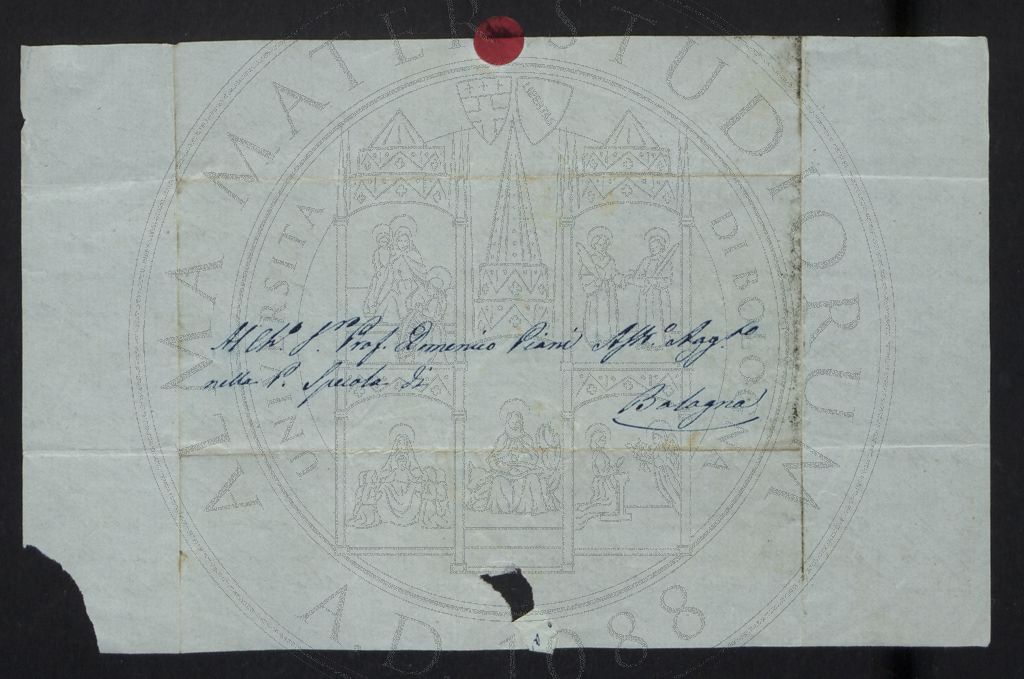 Al Ch.º S.ʳ Prof. Domenico Piani Ast.º Agg.ᵗᵒ
nella P. Specola di
Bologna
ALMA MATER STUDIORUM
UNIVERSITA DI BOLOGNA
LIBERTAS
A.D. 1088